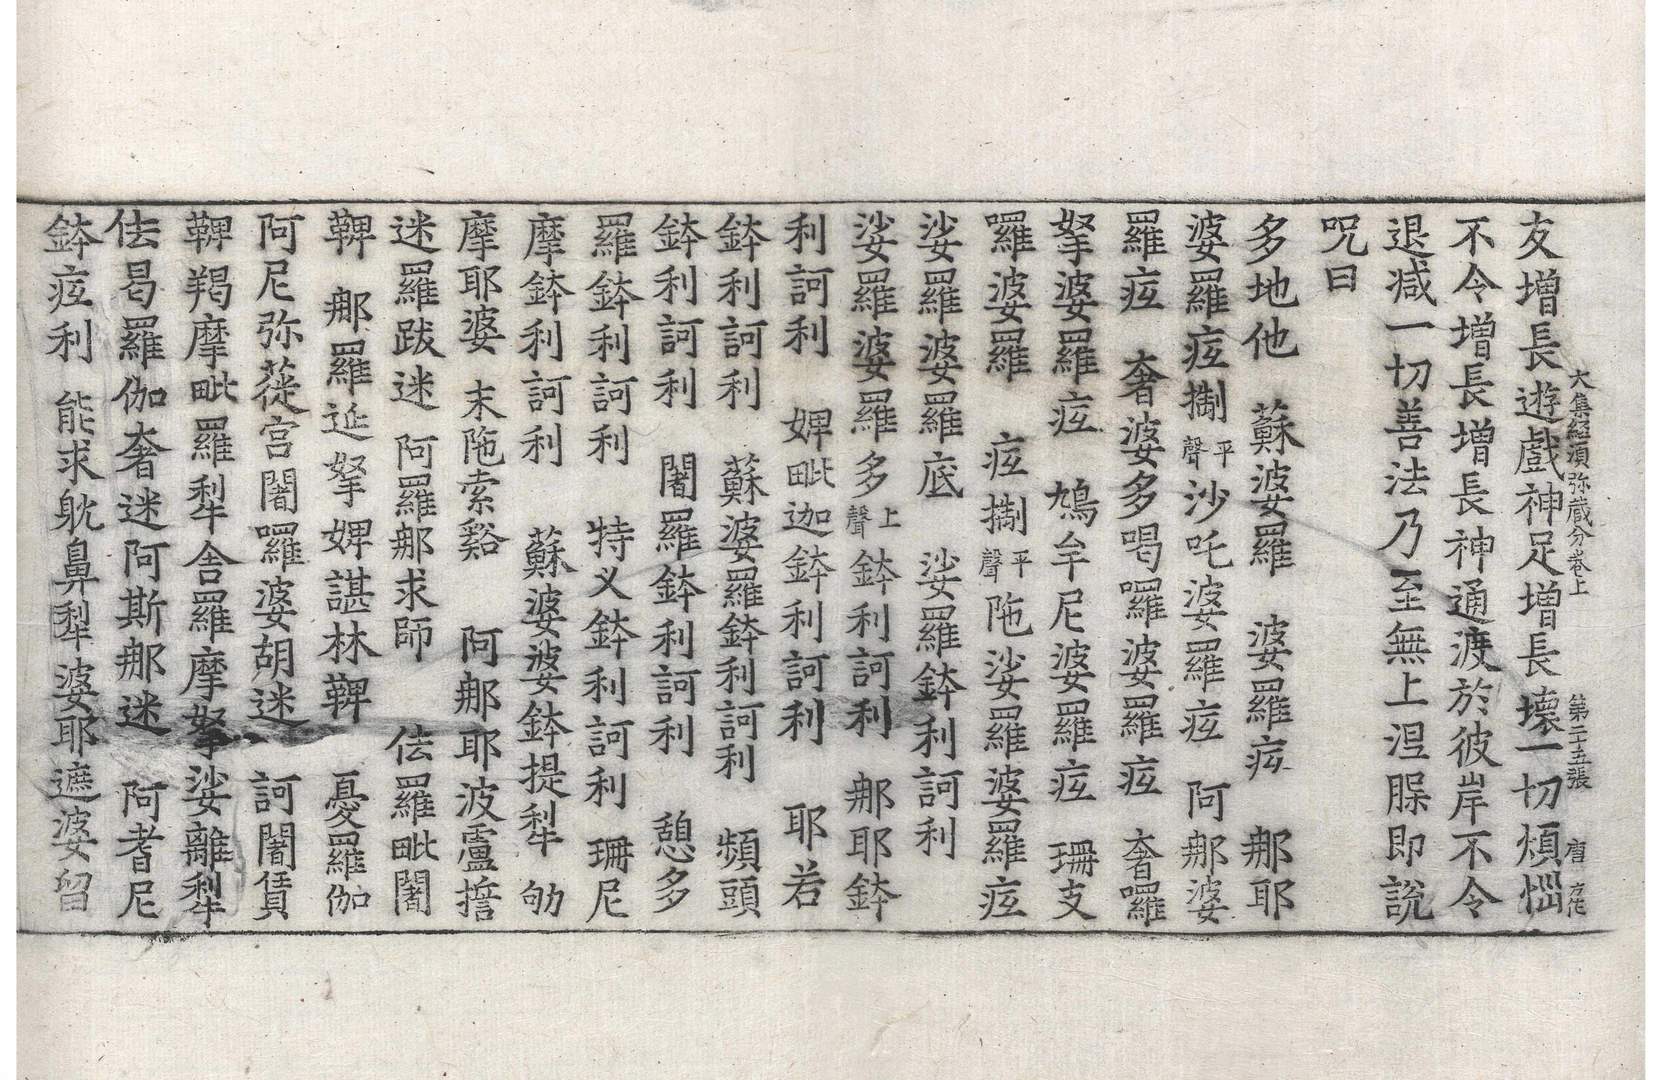 大集経湏弥蔵分巻上 第二五張 唐
友增長遊戯神足增長壊一切煩惱
不令增長增長神通渡於彼岸不令
退減一切善法乃至無上涅脵即説
呪曰
多地他 蘇婆羅 婆羅㽵 那耶
婆羅㽵掣平聲沙吒婆羅㽵 阿那婆
羅㽵 奢婆多喝囉婆羅㽵 奢囉
拏婆羅㽵 鳩牟尼婆羅㽵 珊支
囉婆羅 㽵掣平聲陁娑羅婆羅㽵
娑羅婆羅底 娑羅鉢利訶利
娑羅婆羅多上聲鉢利訶利 那耶鉢
利訶利 婢毗迦鉢利訶利 耶若
鉢利訶利 蘇婆羅鉢利訶利 頻頭
鉢利訶利 闍羅鉢利訶利 憩多
羅鉢利訶利 特义鉢利訶利 珊尼
摩鉢利訶利 蘇婆婆鉢提犁 劬
摩耶婆 末陁索谿 阿那耶波盧䜿
迷羅跋迷 阿羅那求師 佉羅毗闍
鞞 那羅延拏婢諶林鞞 憂羅伽
阿尼弥蓰宫闍囉婆胡迷 訶闍賃
鞞羯摩毗羅犁舎羅摩拏娑離犁
佉曷羅伽奢迷阿斯那迷 阿耆尼
鉢㽵利 能求躭鼻犁婆耶遮婆留